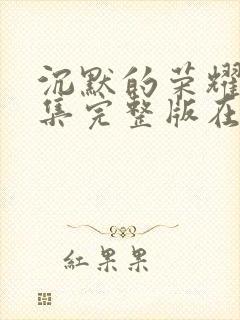 沉默的荣耀
集完整版在
红果果